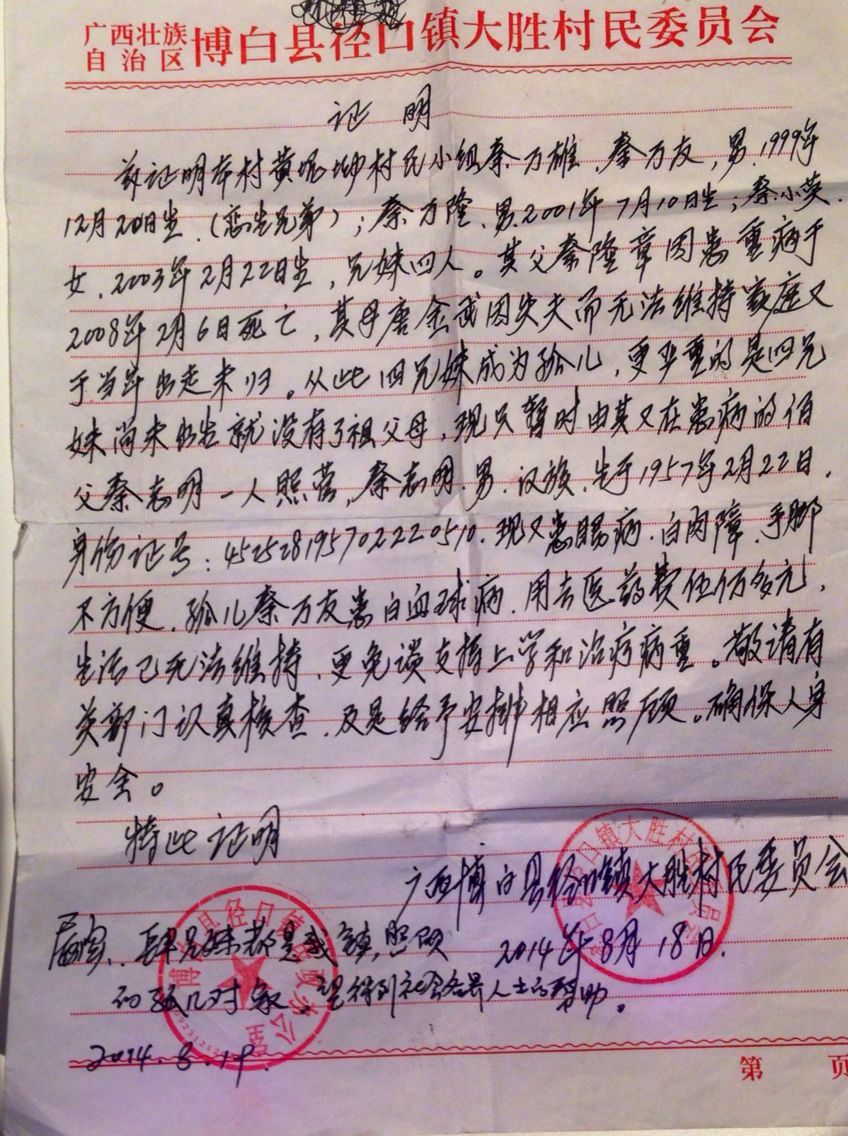 广西壮族
自治区 博白县径口镇大胜村民委员会
证明
兹证明本村黄坭坳村民小组秦万雄、秦万友,男,1999年
12月20日生,(恋生兄弟);秦万隆、男,2001年7月10日生;秦小英、
女,2003年2月22日生,兄妹四人。其父秦隆章因患重病于
2008年2月6日死亡,其母唐金武因失夫而无法维持家庭又
于当年出走未归。从此四兄妹成为孤儿,更严重的是四兄
妹尚未出生就没有了祖父母,现只暂时由其又在患病的伯
父秦志明一人照营,秦志明、男、汉族、生于1957年2月22日,
身份证号:452528195702220510.现又患眼病、白内障、手脚
不方便,孤儿秦万友患白血球病,用去医药费伍仟多元,
生活已无法维持,更免谈支持上学和治疗病重。敬请有
关部门认真核查,及是给予安排相应照顾。确保人身
安全。
特此证明
广西博白县径口镇大胜村民委员会
2014年8月18日.
属实、四兄妹都是我镇照顾
的孤儿对象。望得到社会各界人士的帮助。
2014.8.19.
第 页